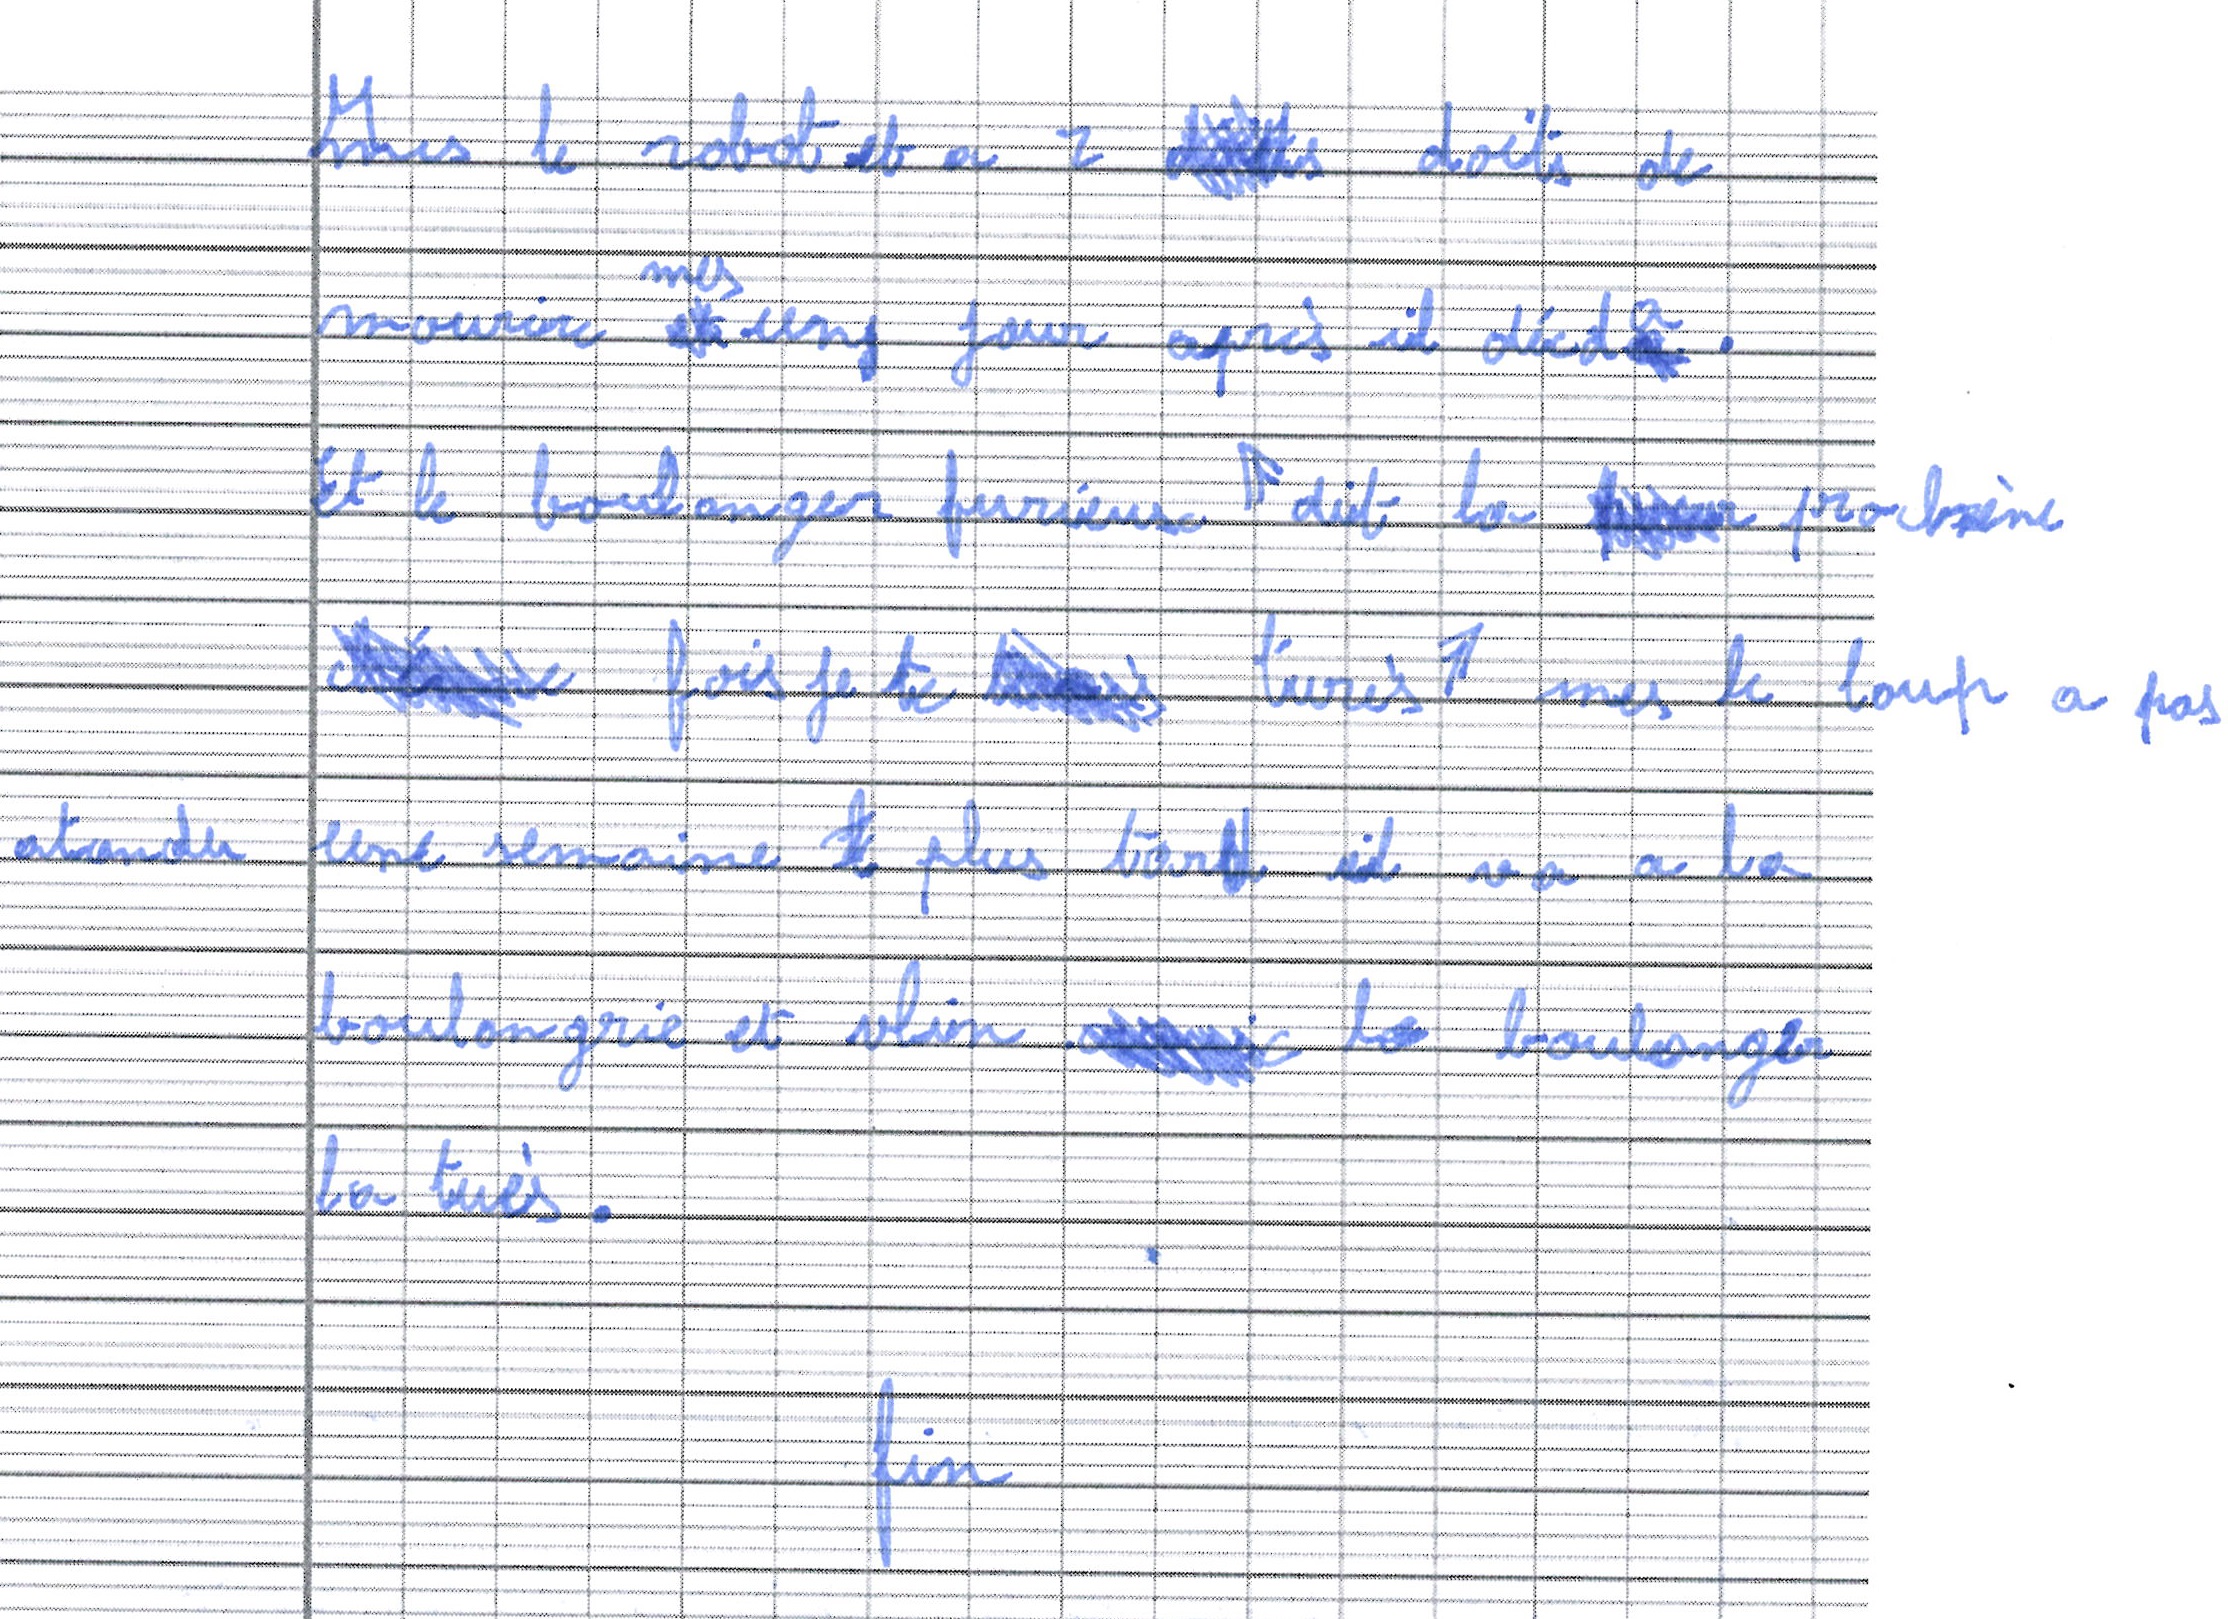 Mes le robot et a 2 doits de
mourire mes un jour après il déced.
Et le boulanger furieux ↑ dit la prochène
fois je te turès ↑ mes le loup a pas
atandu une semaine plus tard il va a la
boulangrie et vlin le boulanger
la tués.
fin